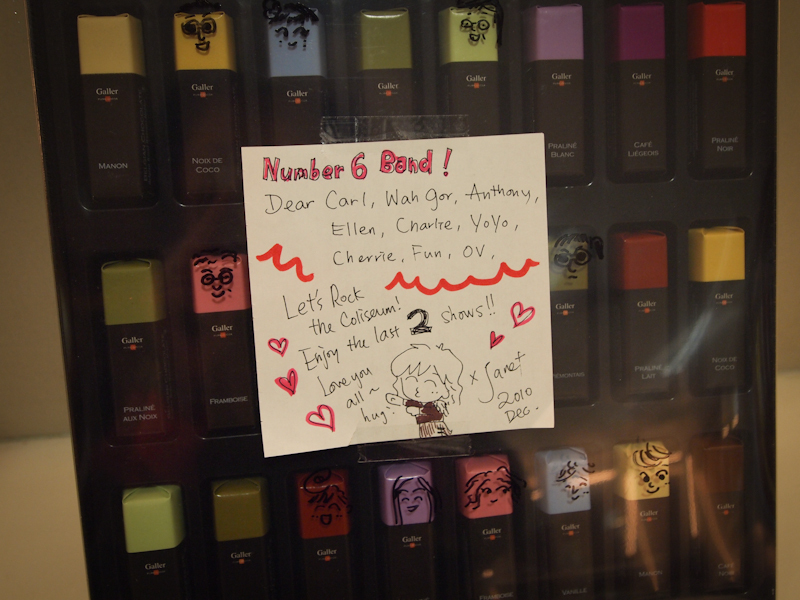 Galler
MANON
Galler
NOIX DE
COCO
Galler
Galler
Galler
Galler
PRALINÉ
BLANC
Galler
CAFÉ
LIÉGEOIS
Galler
PRALINÉ
NOIR
Number 6 Band!
Dear Carl, Wah Gor, Anthony,
Ellen, Charlie, YoYo,
Cherrie, Fun, OV,
Let's Rock
the Coliseum!
Enjoy the last 2 shows!!
Love you
all~
hug
x Janet
2010
Dec.
Galler
PRALINÉ
AUX NOIX
Galler
FRAMBOISE
Galler
Galler
PRALINÉ
LAIT
Galler
NOIX DE
COCO
Galler
Galler
Galler
Galler
Galler
FRAMBOISE
Galler
VANILLE
Galler
MANON
Galler
CAFÉ
NOIR